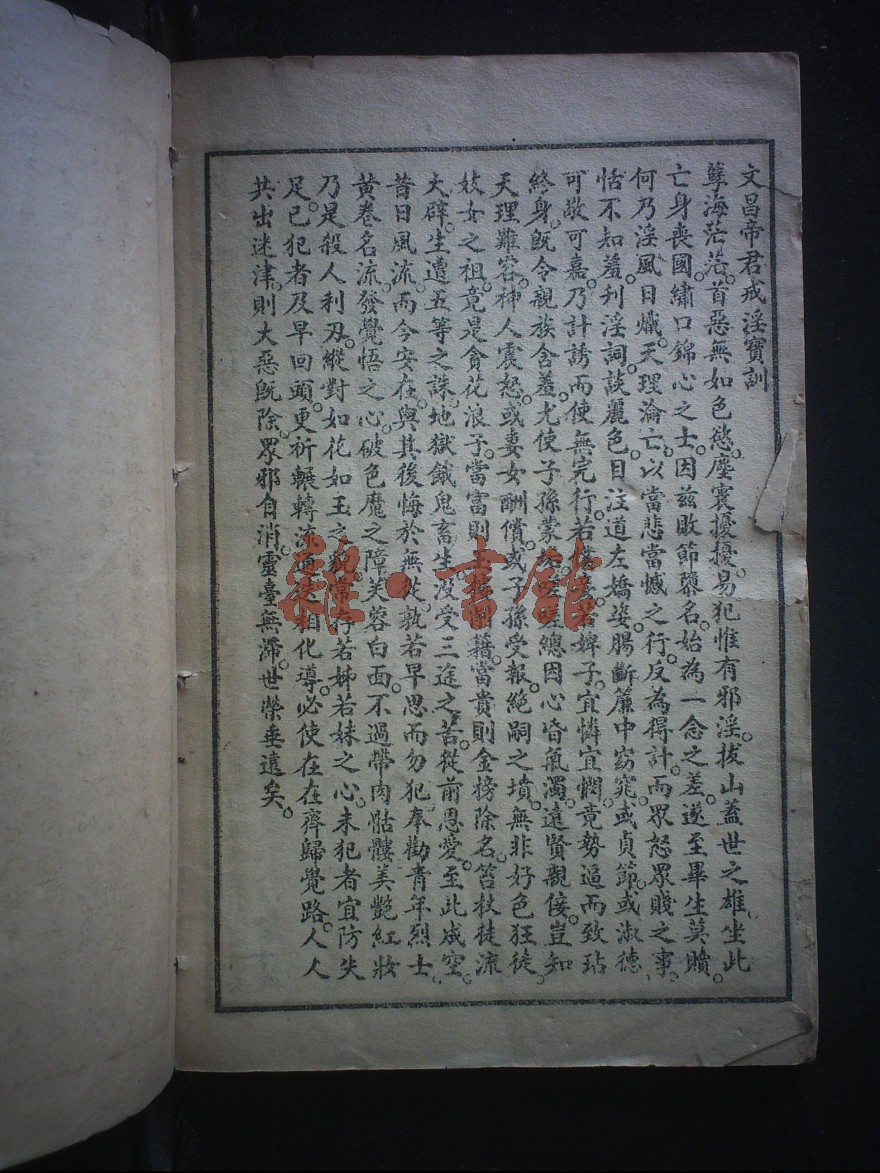 文昌帝君戒淫寶訓
孽海茫茫。首惡無如色慾。塵寰擾擾。易犯惟有邪淫。拔山蓋世之雄。坐此
亡身喪國。繡口錦心之士。因茲敗節隳名。始為一念之差。遂至畢生莫贖。
何乃淫風日熾。天理淪亡。以當悲當憾之行。反為得計。而眾怒眾賤之事。
恬不知羞。刋淫詞。談麗色。目注道左嬌姿。腸斷簾中窈窕。或貞節。或淑德。
可敬可嘉。乃計誘而使無完行。若婢子。宜憐宜憫。竟勢逼而致玷
終身。既令親族含羞。尤使子孫蒙總因心昏氣濁。遠賢親佞。豈知
天理難容。神人震怒。或妻女酬償。或子孫受報。絕嗣之墳。無非好色狂徒。
妓女之祖。竟是貪花浪子。當富則玉籍。當貴則金榜除名。笞杖徒流
大辟。生遭五等之誅。地獄餓鬼畜生。沒受三途之苦。從前恩愛。至此成空。
昔日風流。而今安在。與其後悔於無從。孰若早思而勿犯。奉勸青年烈士。
黃卷名流。發覺悟之心。破色魔之障。芙蓉白面。不過帶肉骷髏。美艷紅妝
乃是殺人利刃。縱對如花如玉之貌。常存若姊若妹之心。未犯者宜防失
足。已犯者及早回頭。更祈輾轉流通。迭相化導。必使在在齊歸覺路。人人
共出迷津。則大惡既除。眾邪自消。靈臺無滯。世榮垂遠矣。
雜·書舘